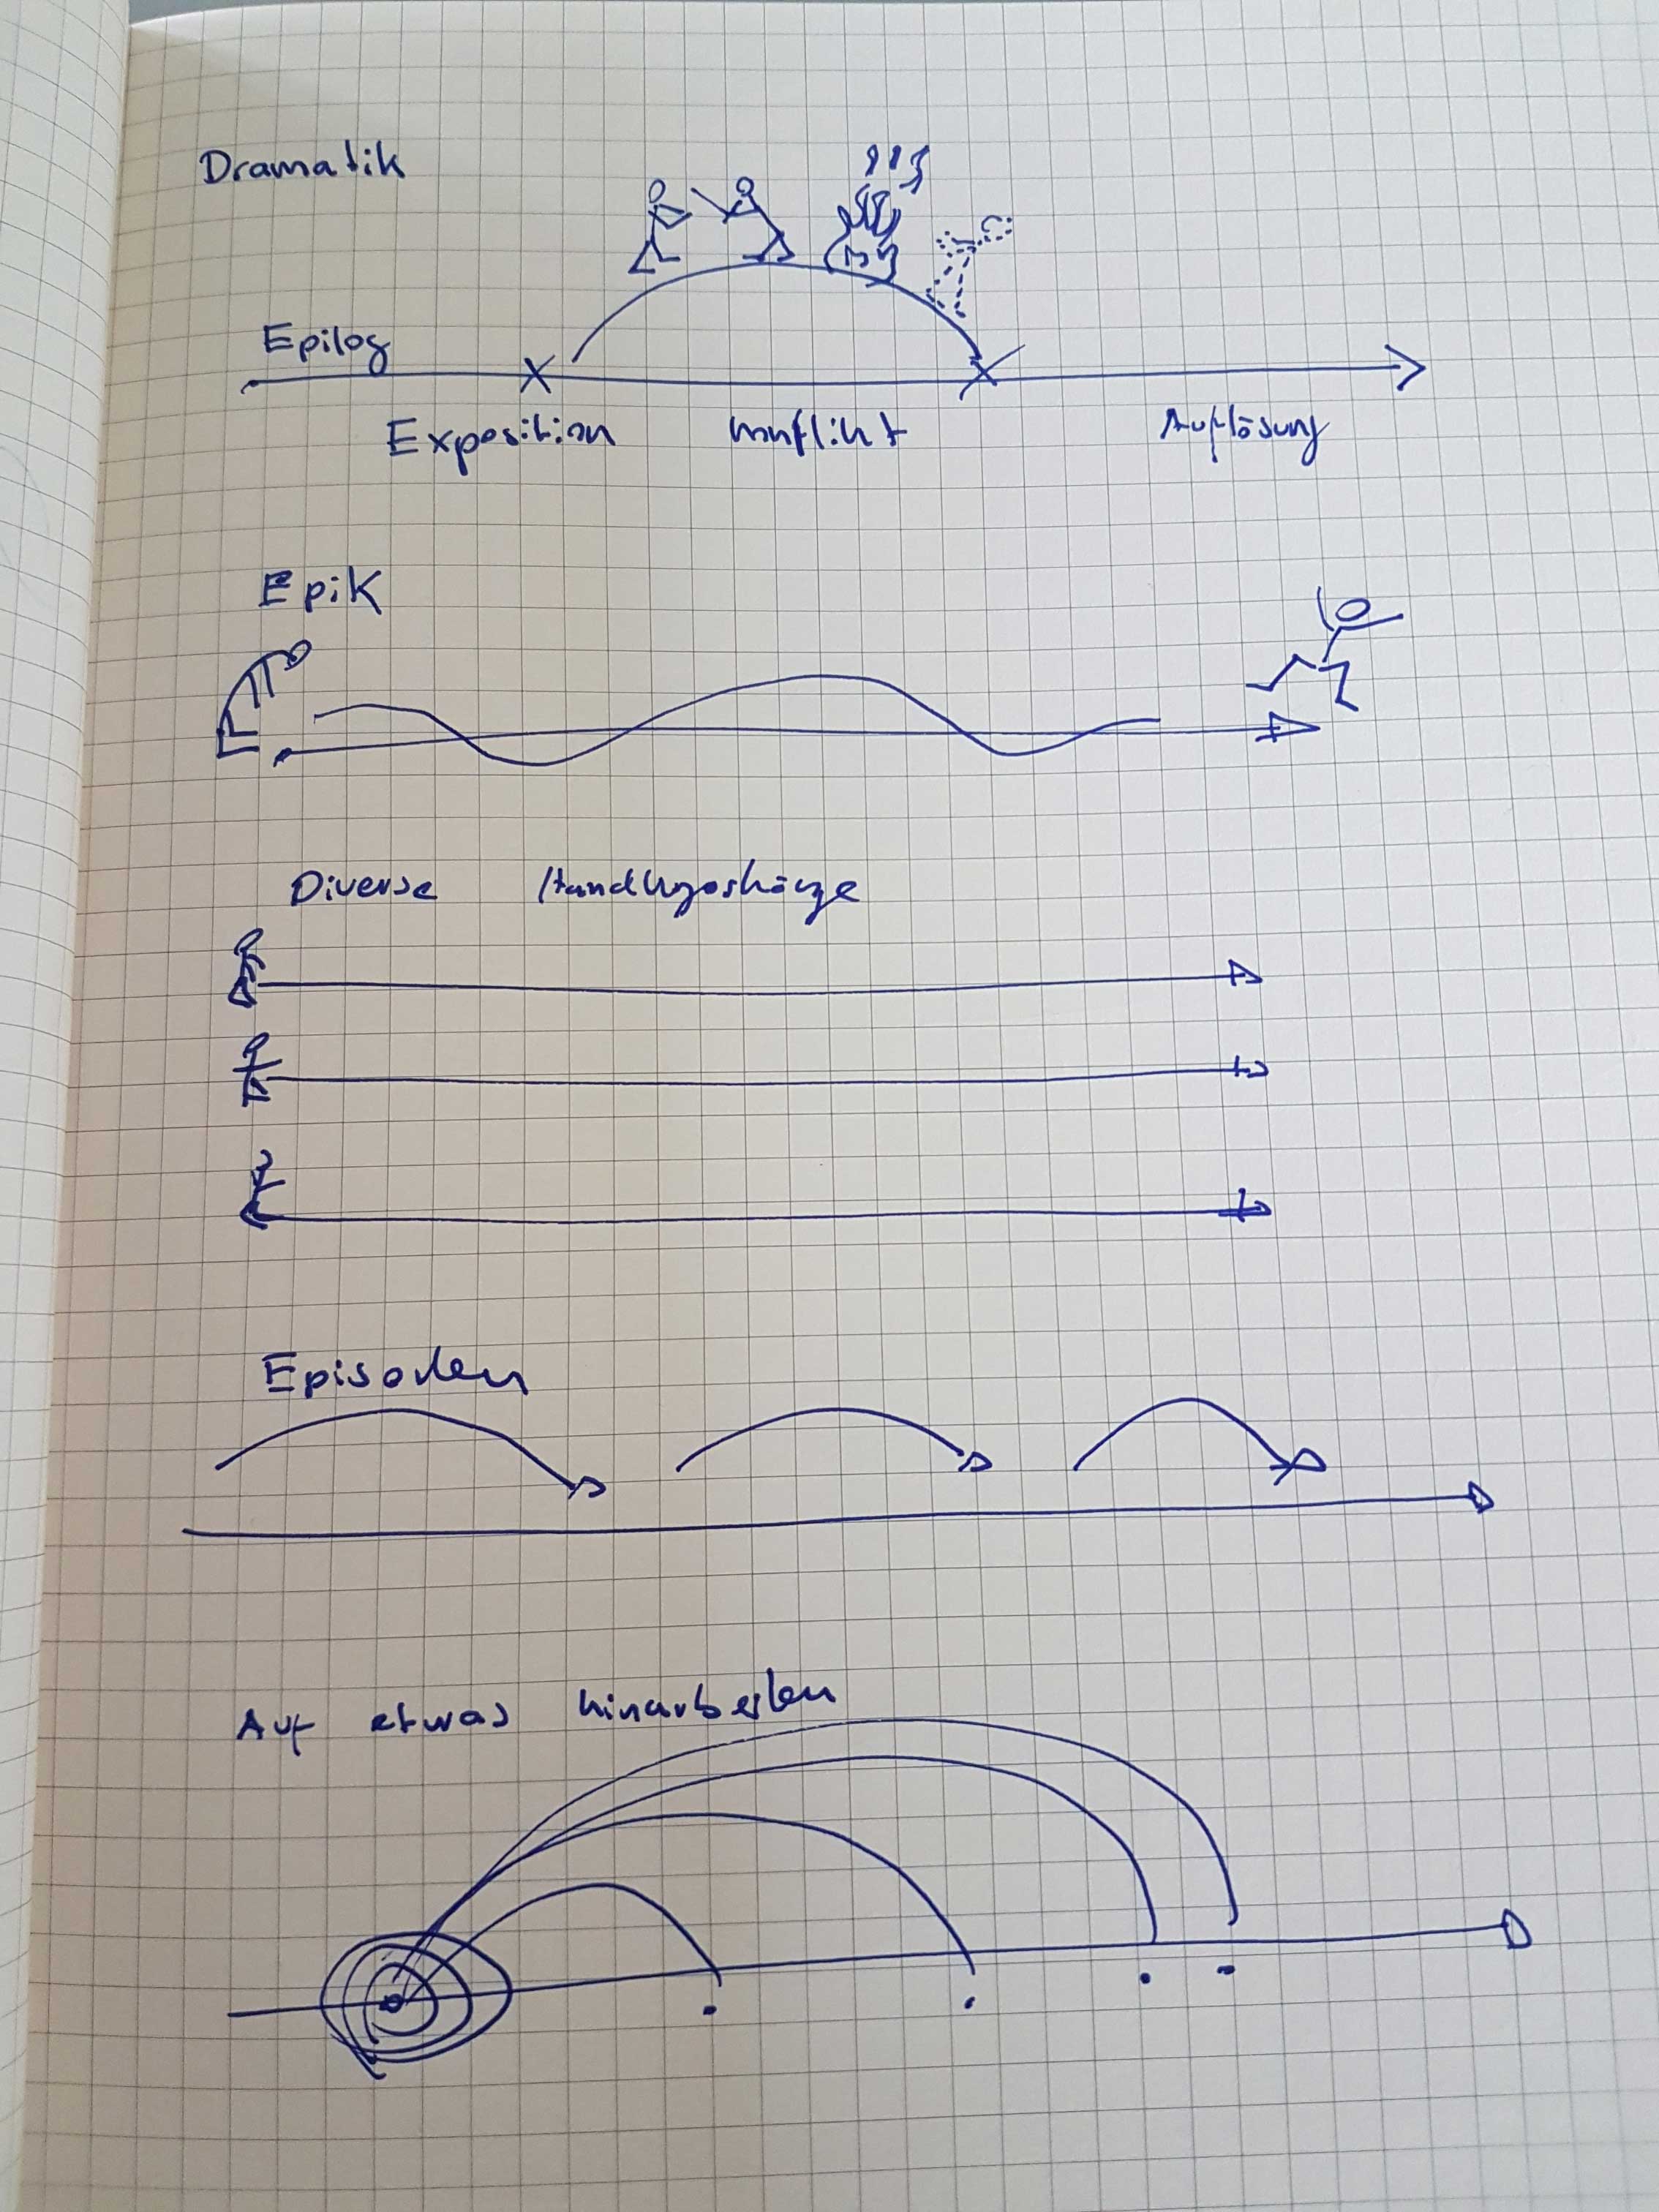 Dramatik
Epilog
Exposition Konflikt Auflösung
Epik
Diverse
Episoden
Auf etwas hinarbeiten